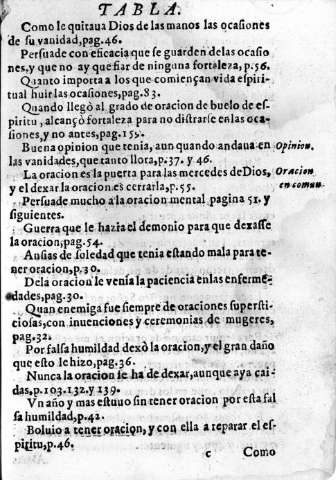 TABLA.
Como le quitaua Dios de las manos las ocasiones
de su vanidad, pag. 46.
Persuade con eficacia que se guarden de las ocasio
nes, y que no ay que fiar de ninguna fortaleza, p. 56.
Quanto importa a los que comiençan vida espiri-
tual huir las ocasiones, pag. 83.
Quando llegò al grado de oracion de buelo de es-
piritu, alcançò fortaleza para no distraerse en las oca-
siones, y no antes, pag. 155.
Buena opinion que tenia, aun quando andaua en Opinion.
las vanidades, que tanto llora, p. 37. y 46.
La oracion es la puerta para las mercedes de Dios, Oracion
y el dexar la oracion es cerrarla, p. 55. en comun.
Persuade mucho a la oracion mental pagina 51. y
siguientes.
Guerra que le hazia el demonio para que dexasse
la oracion, pag. 54.
Ansias de soledad que tenia estando mala para te-
ner oracion, p. 30.
De la oracion le venia la paciencia en las enferme-
dades, pag. 30.
Quan enemiga fue siempre de oraciones supersti-
ciosas, con inuenciones y ceremonias de mugeres,
pag. 32.
Por falsa humildad dexò la oracion, y el gran daño
que esto le hizo, pag. 36.
Nunca la oracion se ha de dexar, aunque aya cai-
das, p. 103. 132. y 139.
Vn año y mas estuuo sin tener oracion por esta fal
sa humildad, p. 42.
Boluio a tener oracion, y con ella a reparar el es-
piritu, p. 46.
c Como